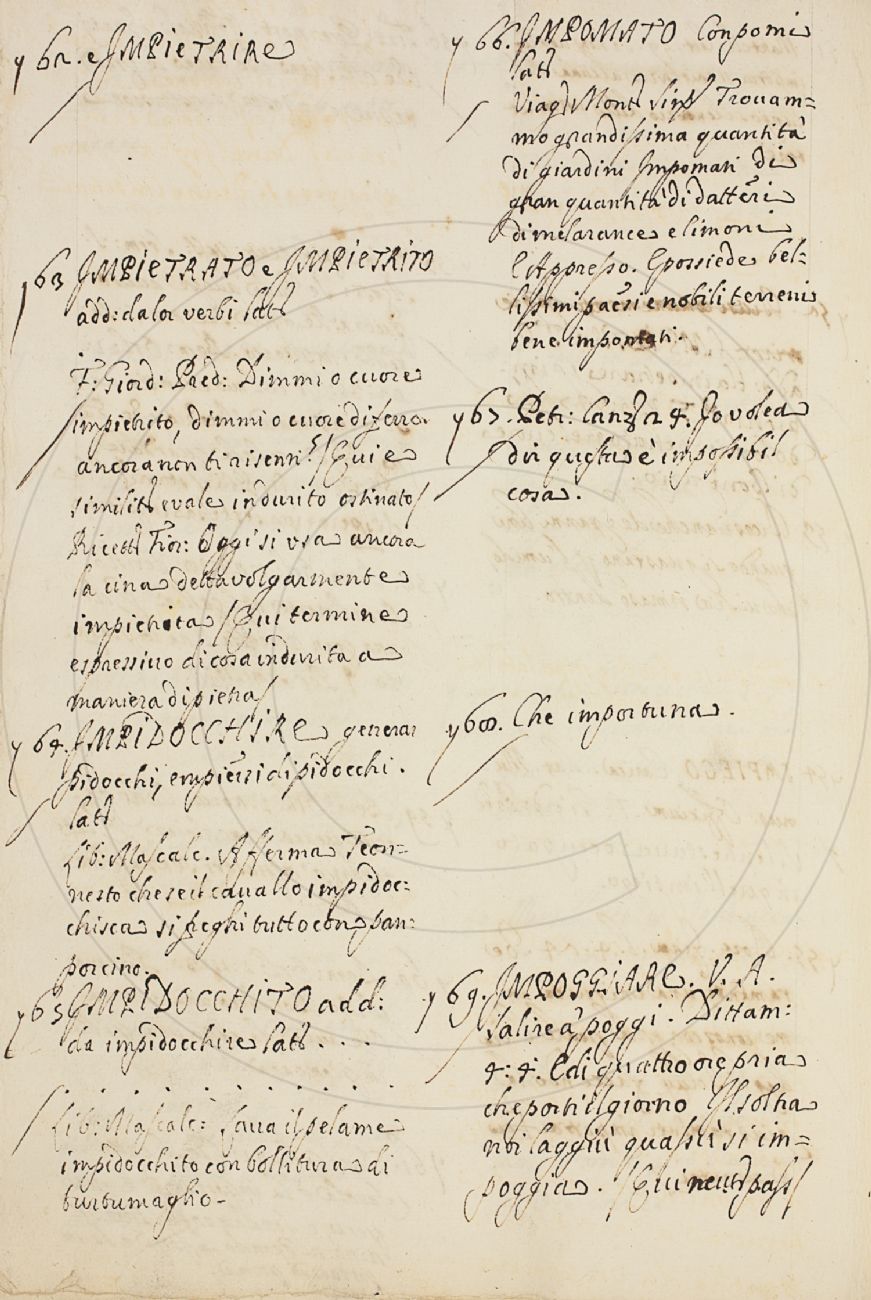 y 62. e IMPIETRIRE
y 63 IMPIETRATO e IMPIETRITO
add: da lor verbi lat:
F: Giord: Pred: Dimmi o cuore
impietrito, dimmi o cuore di ferro.
ancora non ti risenti? / Qui e
similit: e vale indurito ostinato /
Ricett: Fior: Oggi si usa ancora
la cina detta volgarmente
impietrita / Qui termine
espressivo di cosa indurita a
maniera di pietra /
y 64. IMPIDOCCHIRE generar
pidocchi, empiersi di pidocchi.
lat:
Lib: Mascalc. Afferma Teon=
nesto che se il cavallo impidoc:
chisca si freghi tutto con pan:
porcino.
y 65 IMPIDOCCHITO add:
da impidocchire lat: . . .
. . . . . . . . .
Lib: Mascalc: Lava il pelame
impidocchito con bollitura di
turtumaglio -
y 66. IMPOMATO Con pomi
lat:
Viag: Mont: Sin: Trovam=
mo grandissima quantità
di giardini Impomati di
gran quantità di datteri
di melarance e limoni
E Appresso. E possiede bel=
lissimi paesi e nobili terreni
bene impomati.
y 67. Petr: Canz: 2 4. Io volea
dir questa è impossibil
cosa.
y 68. Che importuna.
y 69. IMPOGGIARE. V. A.
Salire a' poggi. Dittam:
4: 4. E di quattro ore pria
che porti il giorno Il sol tra
noi laggiù quassù si im=
poggia. / Qui neut: pass /